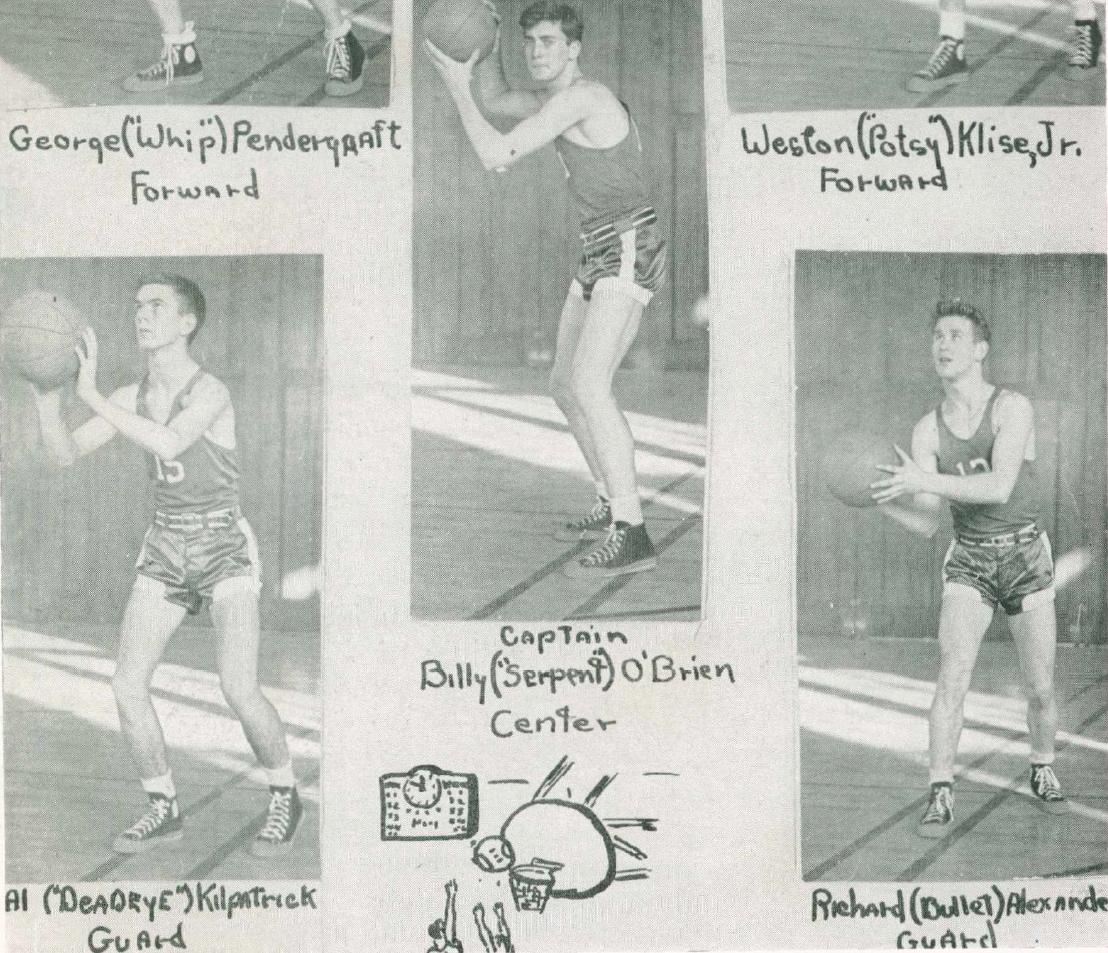 George ("Whip") Pendergraft
Forward
Weston ("Potsy") Klise, Jr.
Forward
15
12
Captain
Billy ("Serpent") O'Brien
Center
Al ("DEADEYE") Kilpatrick
Guard
Richard (Bullet) Alexande
Guard